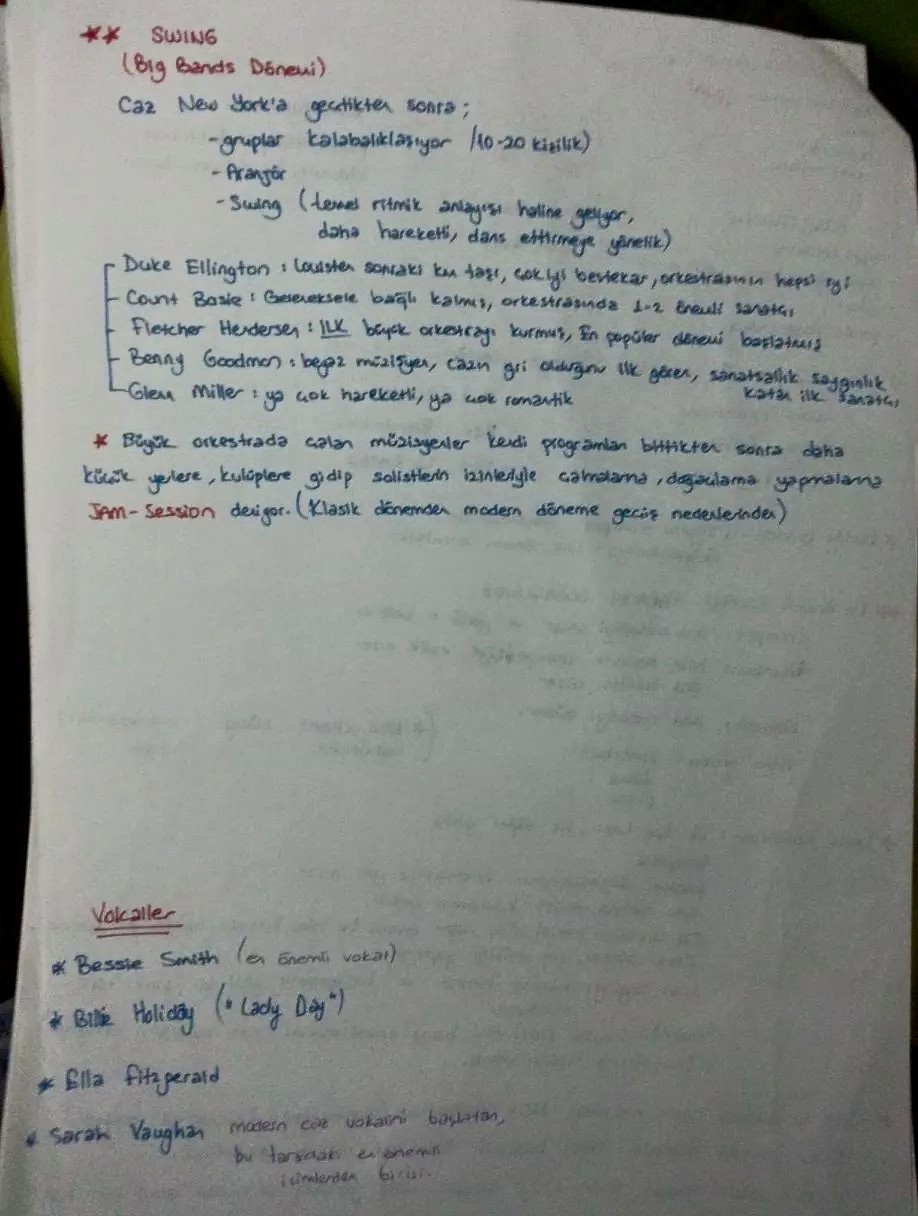 ** SWING
(Big Bands Dönemi)
Caz New York'a geçtikten sonra ;
- gruplar kalabalıklaşıyor /10-20 kişilik)
- Aranjör
- Swing (temel ritmik anlayışı haline geliyor,
daha hareketli, dans ettirmeye yönelik)
Duke Ellington : Louisten sonraki kiş taşı, çok iyi bestekar, orkestrasının hepsi iyi
Count Basie : Geleneksele bağlı kalmış, orkestrasında 1-2 önemli sanatçı
Fletcher Hendersen : İLK büyük orkestrayı kurmuş, En popüler dönemi başlatmış
Benny Goodman : beyaz müzisyen, cazın gri olduğunu ilk gören, sanatsallık saygınlık
katan ilk sanatçı
Glenn Miller : ya çok hareketli, ya çok romantik
* Büyük orkestrada çalan müzisyenler kendi programları bittikten sonra daha
küçük yerlere, kulüplere gidip solistlerin izinleriyle çalmalarına, doğaçlama yapmalarına
JAM-Session deniyor. (Klasik dönemden modern döneme geçiş nedenlerinden)
Vokaller
* Bessie Smith (en önemli vokal)
* Billie Holiday ("Lady Day")
* Ella Fitzgerald
* Sarah Vaughan modern caz vokalini başlatan,
bu tarzdaki en önemli
isimlerden birisi.